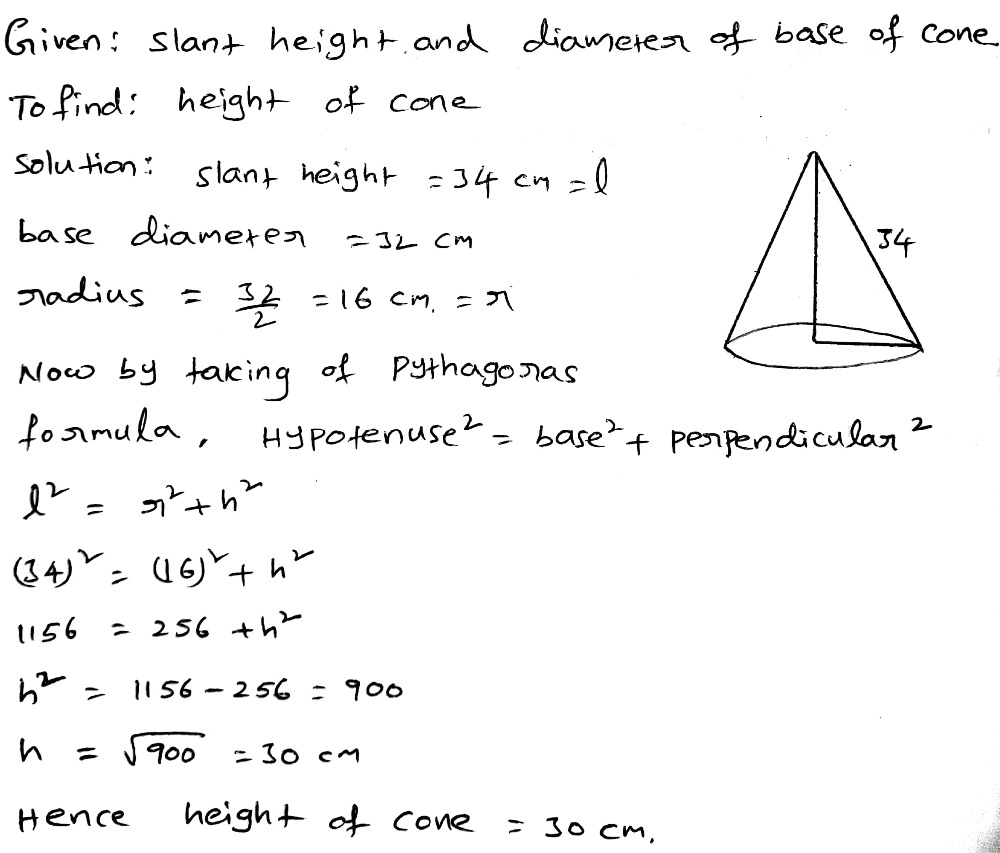 Given: slant height and diameter of base of cone
To find: height of cone
Solution: slant height = 34 cm = l
base diameter = 32 cm
radius = 32/2 = 16 cm. = r
34
Now by taking of Pythagoras
formula, Hypotenuse² = base² + perpendicular²
l² = r² + h²
(34)² = (16)² + h²
1156 = 256 + h²
h² = 1156 - 256 = 900
h = √900 = 30 cm
Hence height of cone = 30 cm.